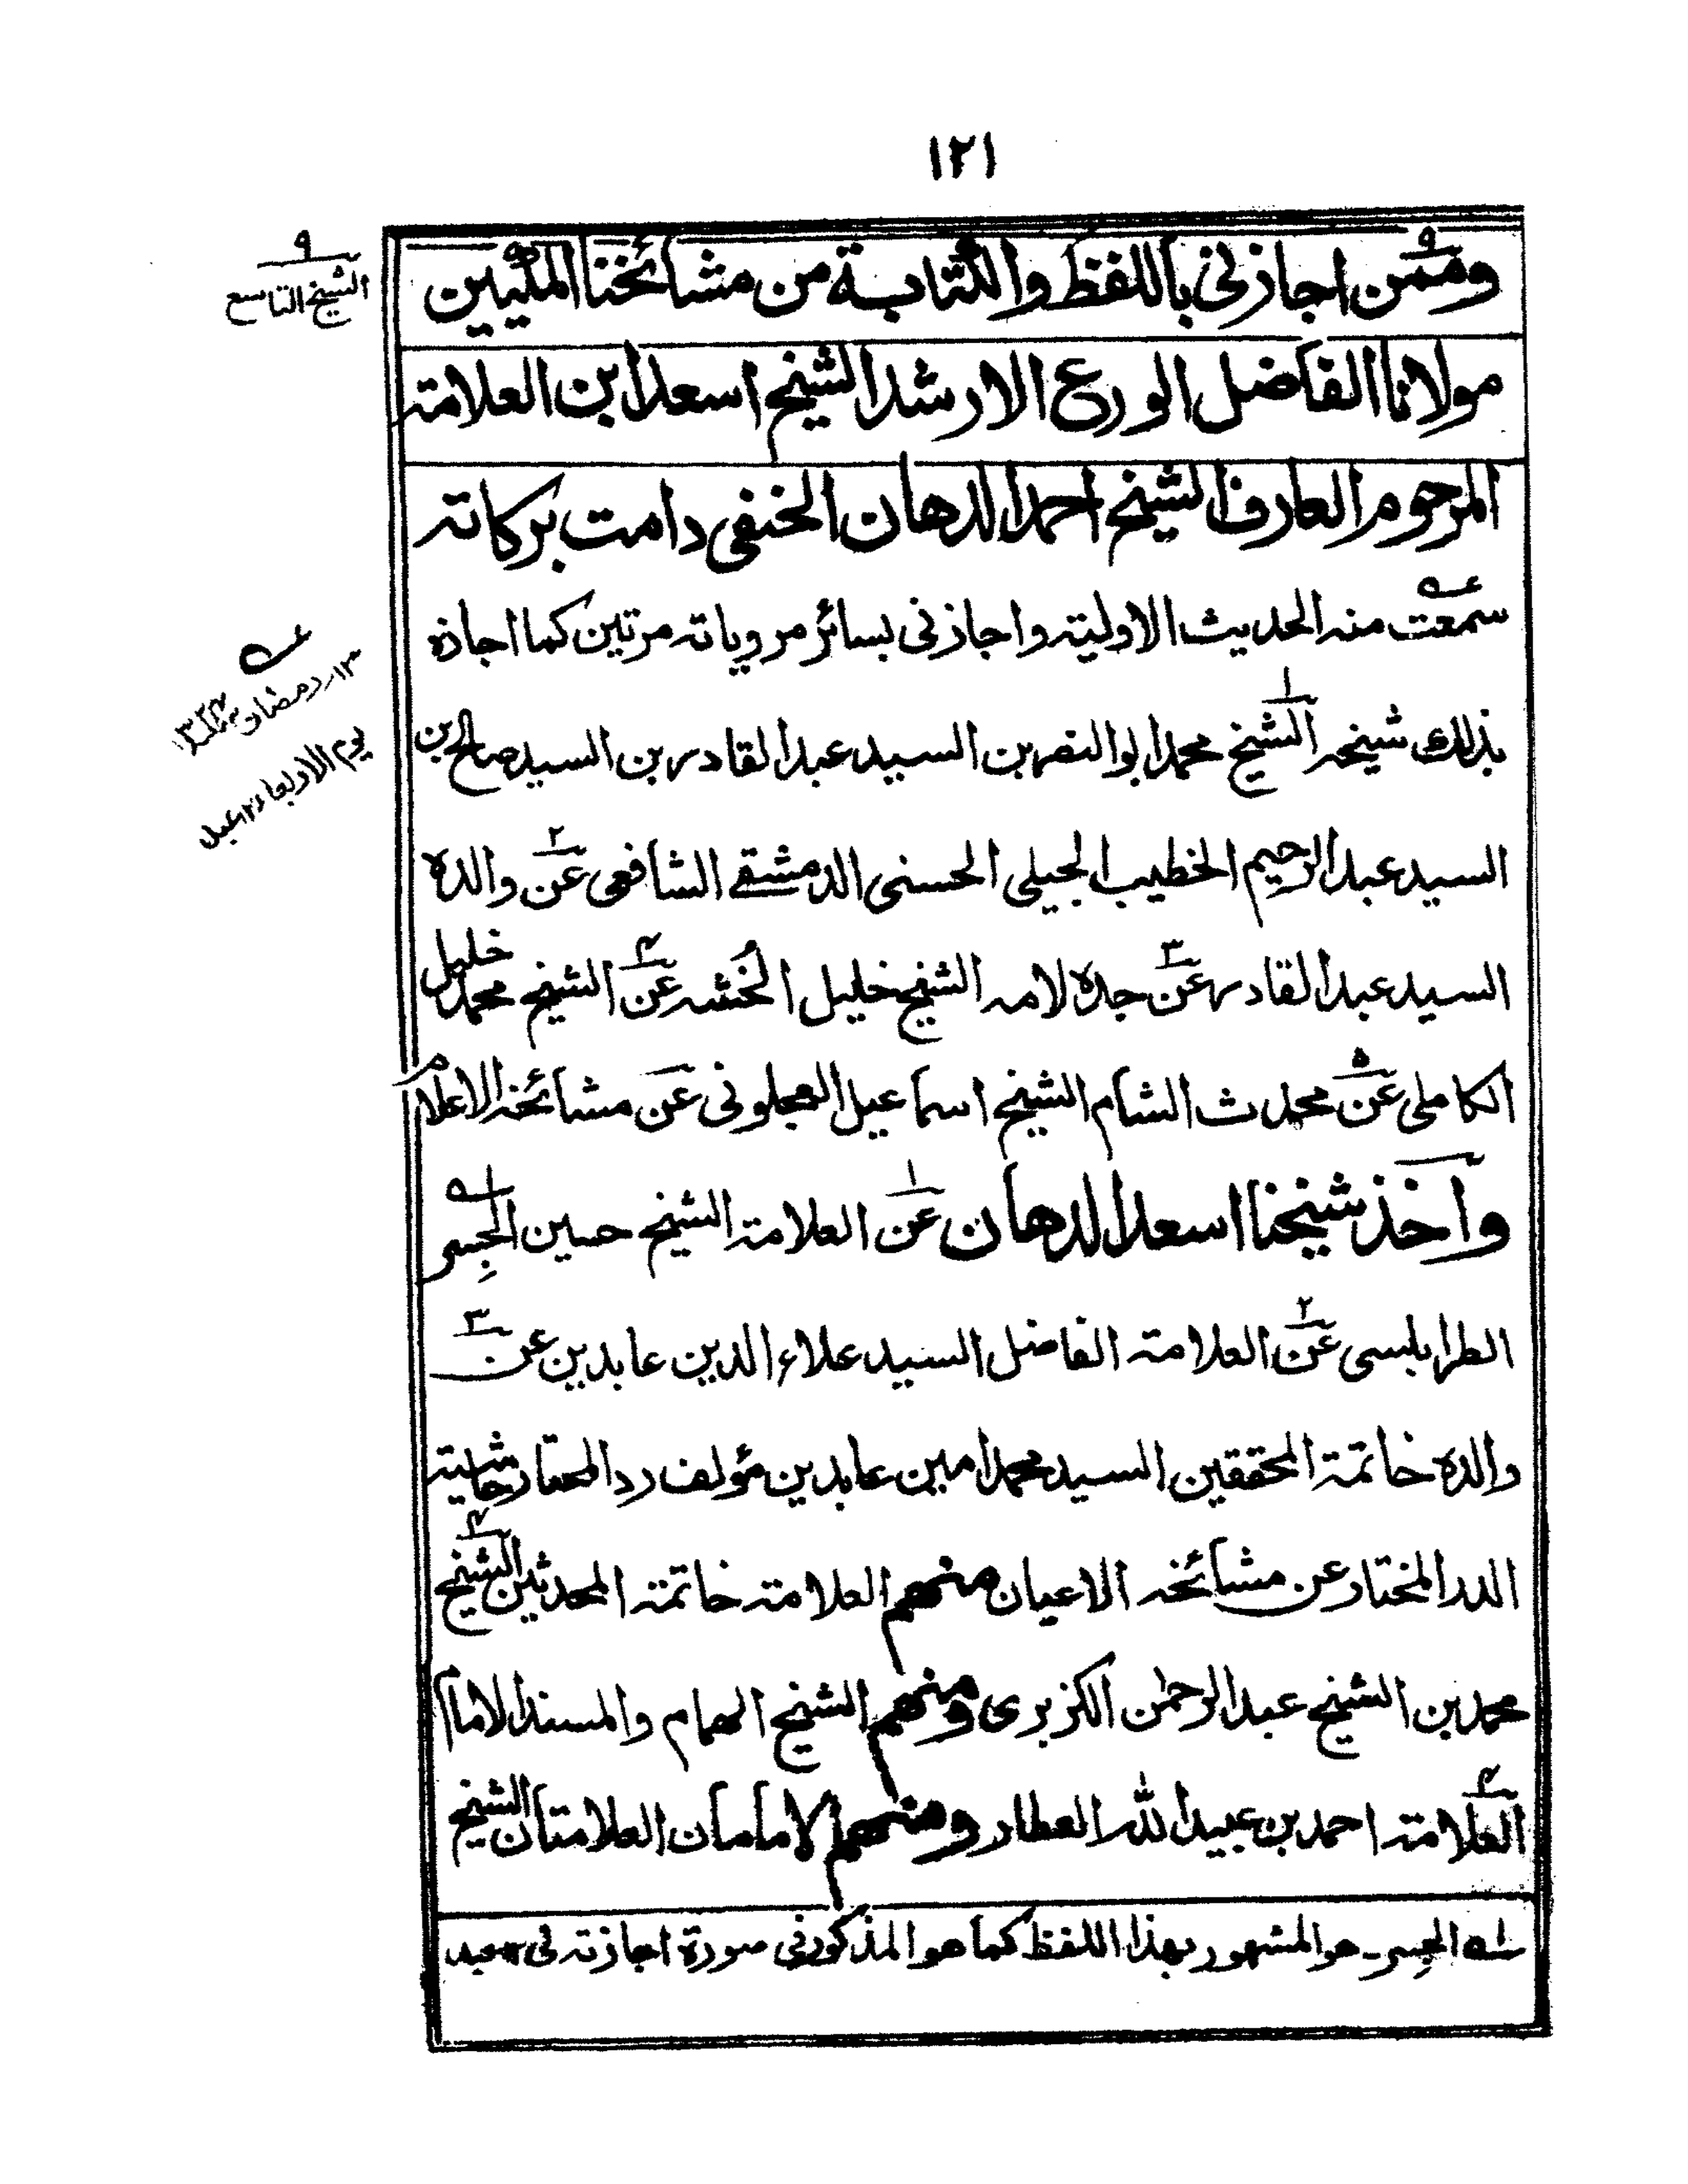 ١٢١
٩
الشيخ التاسع
وممن اجازنى باللفظ والكتابة من مشائخنا المكيين
مولانا الفاضل الورع الارشد الشيخ اسعد ابن العلامة
المرحوم العارف الشيخ احمد الدهان الحنفى دامت بركاته
سمعت منه الحديث الاولية واجازنى بسائر مروياته مرتين كما اجازه
بذلك شيخه الشيخ محمد ابو النصر بن السيد عبد القادر بن السيد صالح بن
السيد عبد الرحيم الخطيب الجيلى الحسنى الدمشقے الشافعى عن والده
السيد عبد القادر عن جده لامه الشيخ خليل الخُشه عن الشيخ محمد خليل
الكاملى عن محدث الشام الشيخ اسماعيل العجلونى عن مشائخه الاعلام
وآخذ شيخنا اسعد الدهان عن العلامة الشيخ حسين الجِسر
الطرابلسى عن العلامة الفاضل السيد علاء الدين عابدين عن
والده خاتمة المحققين السيد محمد امين عابدين مؤلف رد المحتار حاشية
الدر المختار عن مشائخه الاعيان منهم العلامة خاتمة المحدثين الشيخ
محمد بن الشيخ عبد الرحمٰن الكزبرى ومنهم الشيخ الهمام والمسند الامام
العلامة احمد بن عبيد الله العطار ومنهم الامامان العلامتان الشيخ
١ـه الجِسر ـ هو المشهور بهذا اللفظ كما هو المذكور فى صورة اجازته لى ١٢ عبد
١٣ رمضان
يوم الاربعاء ١٢ عبد